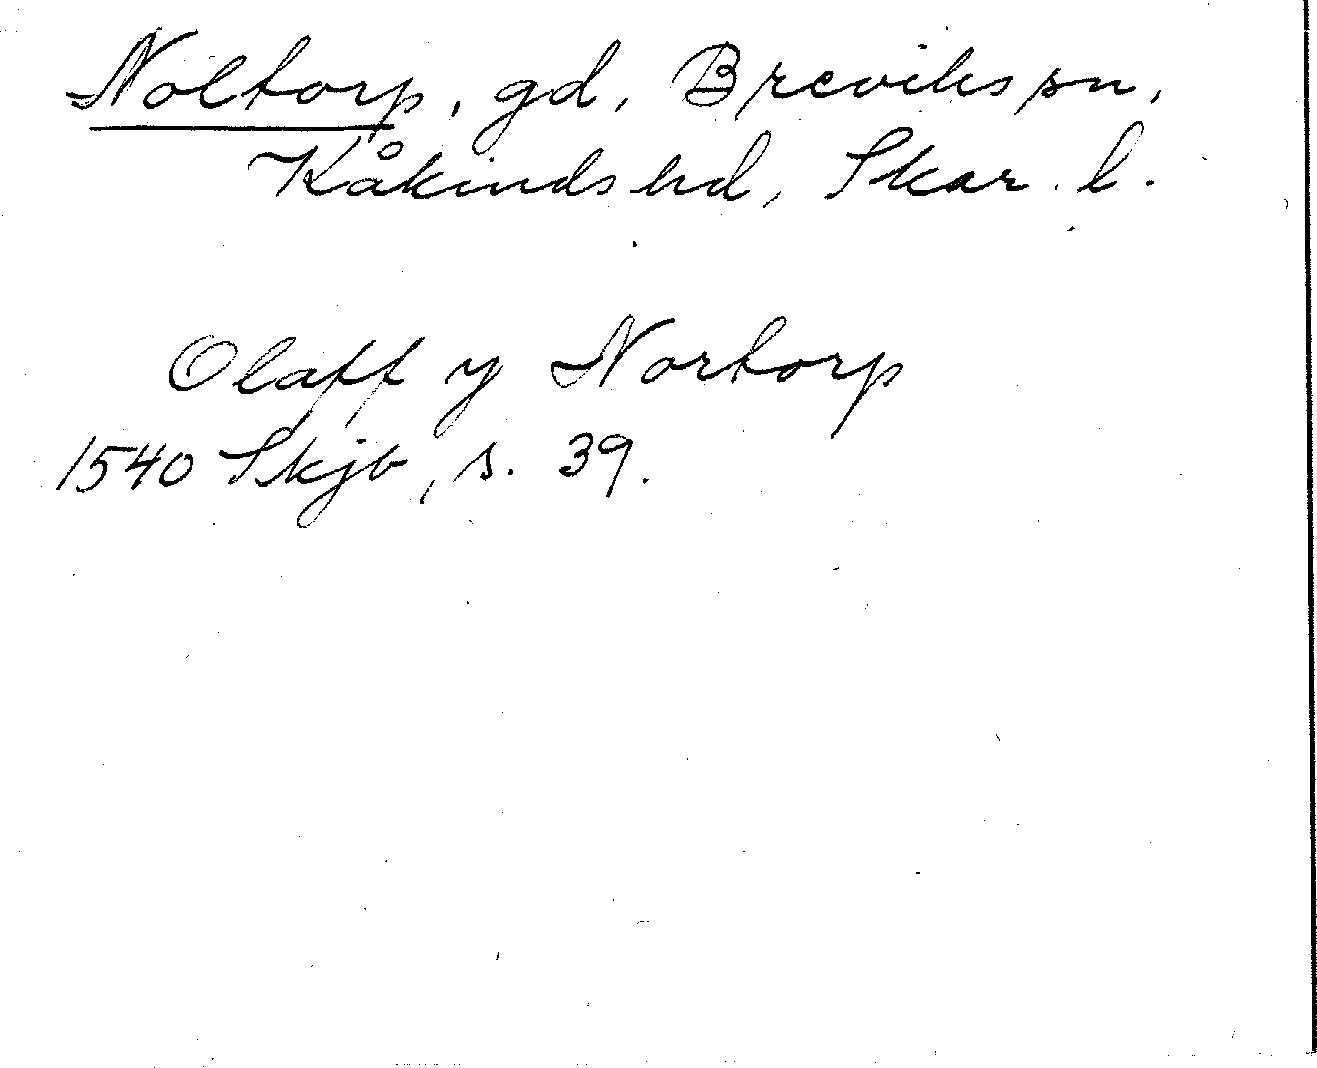 Noltorp, gd, Breviks sn,
Kåkinds hd, Skar. l.
Olaff y Nortorp
1540 Skjb, s. 39.